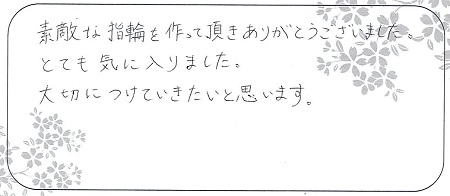 素敵な指輪を作って頂きありがとうございました。
とても気に入りました。
大切につけていきたいと思います。